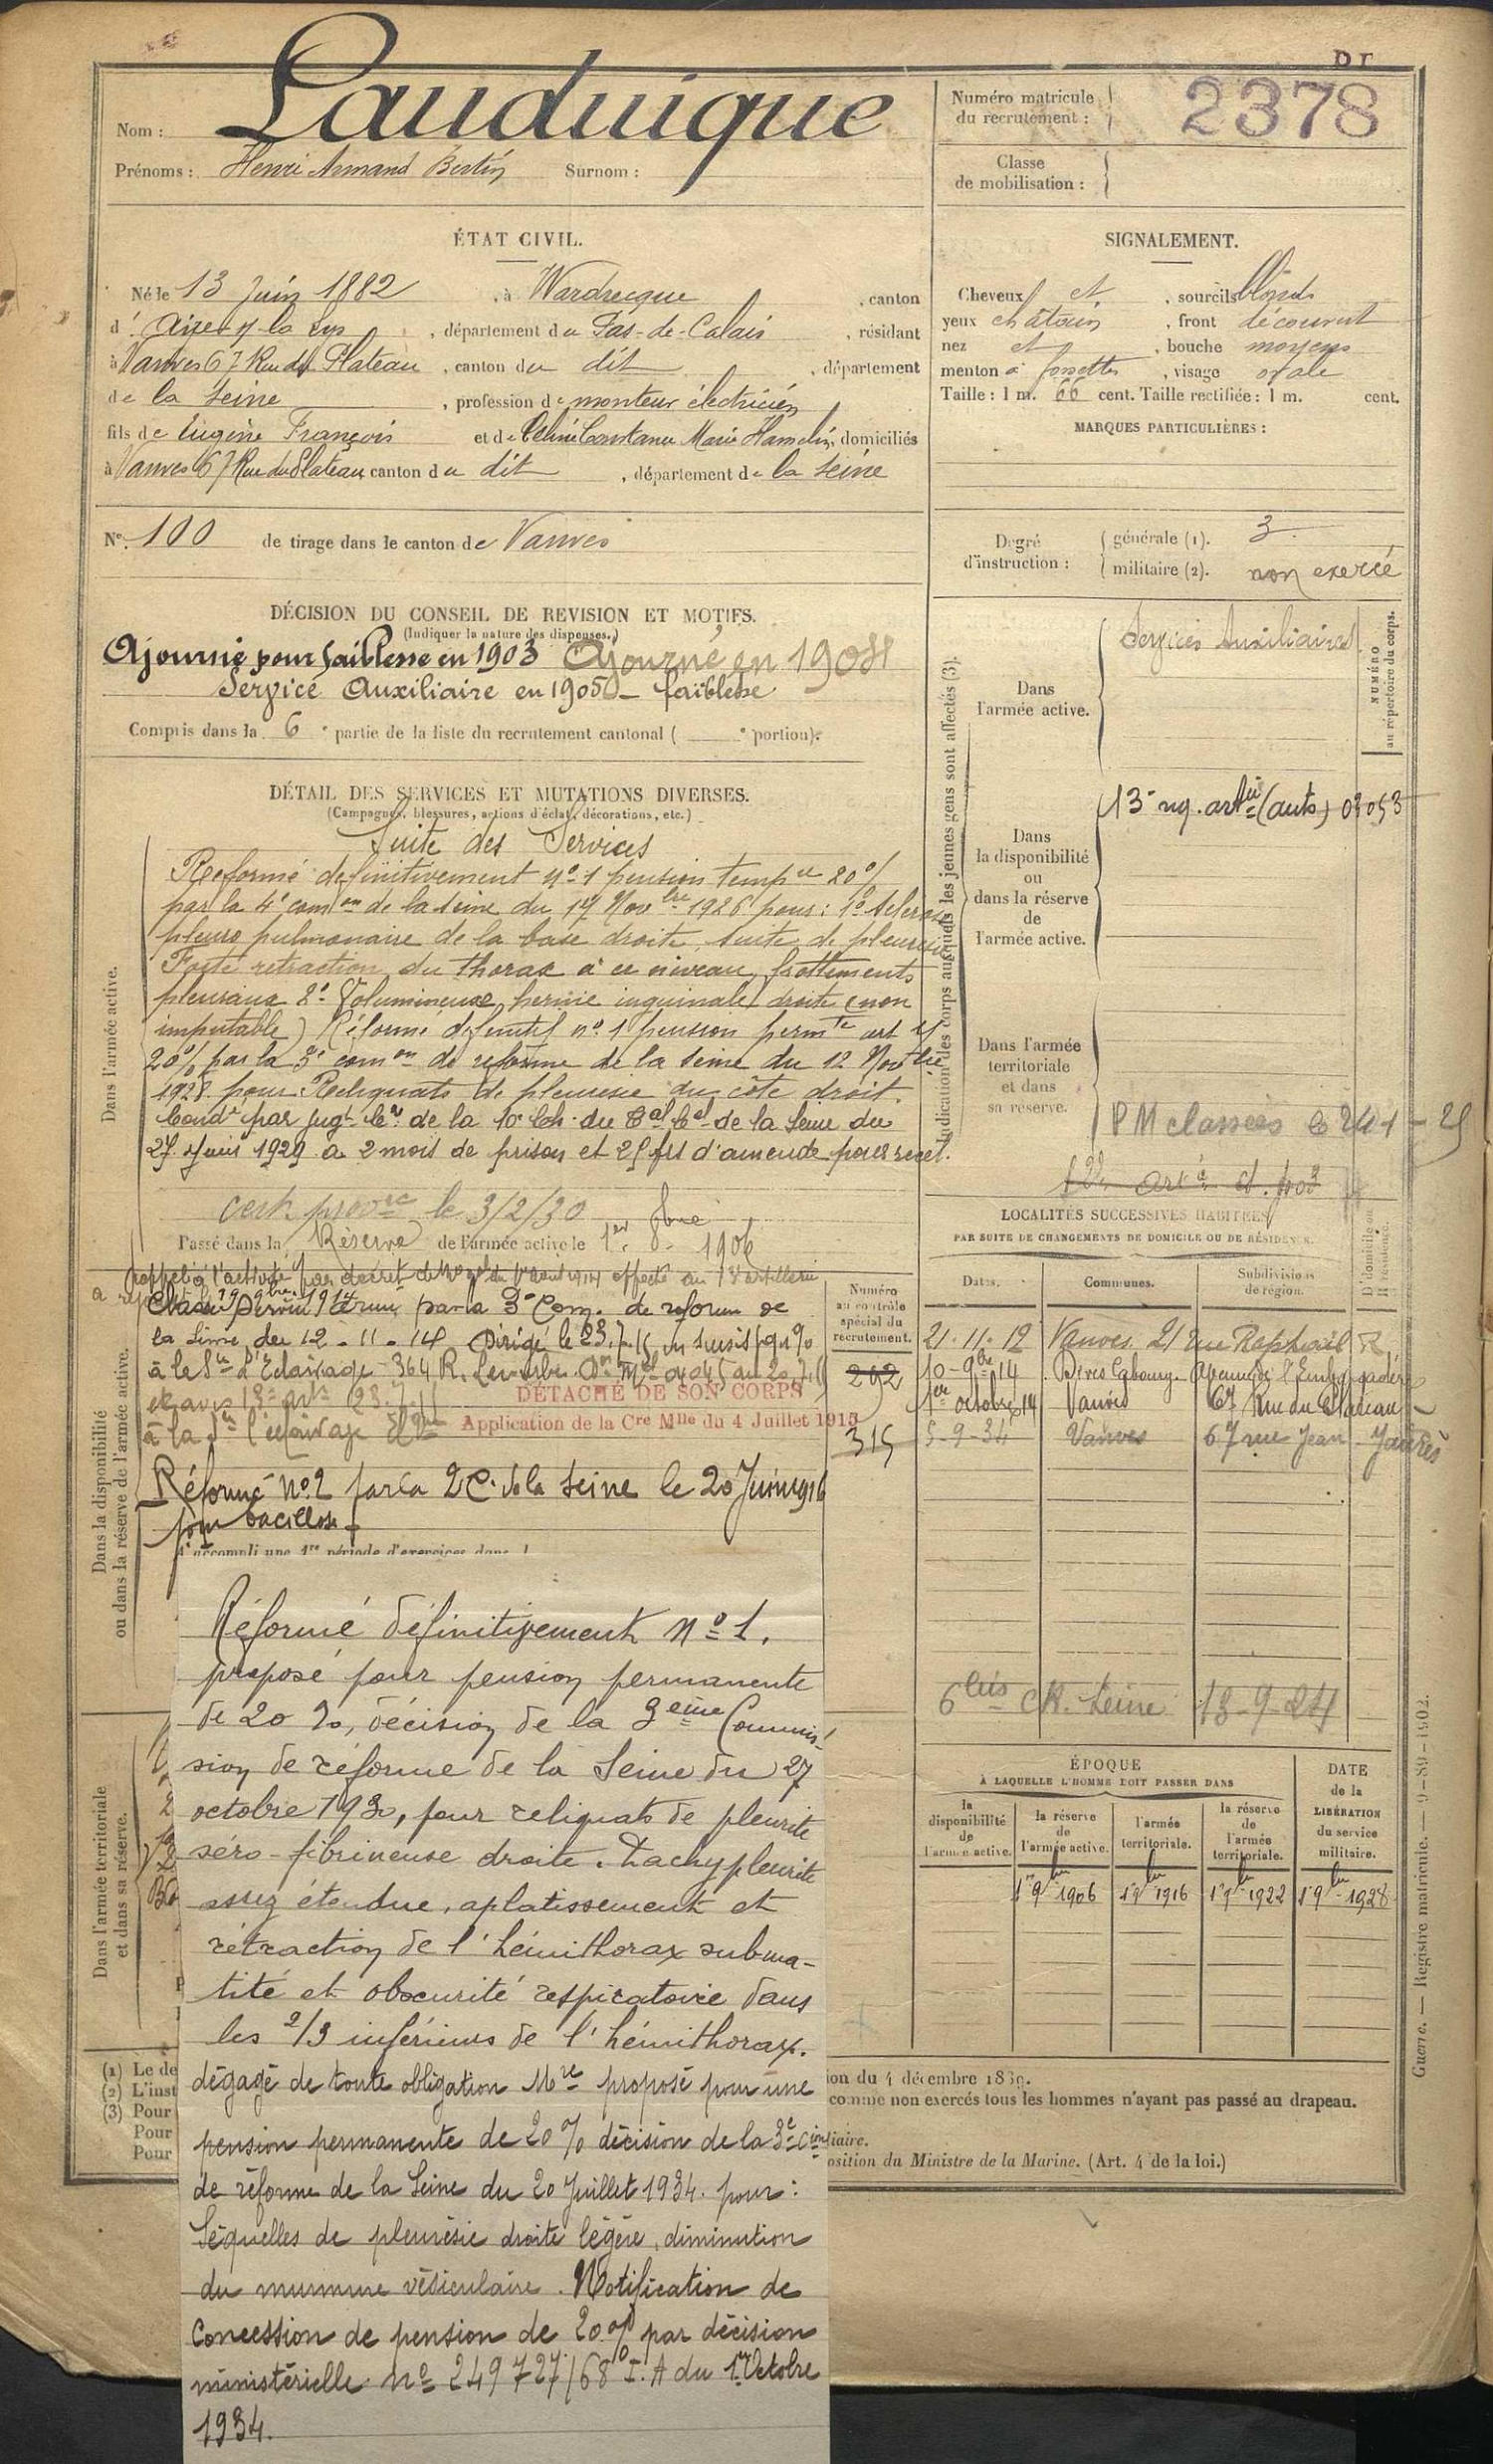 Nom : Lauduique
Prénoms : Henri Armand Bertin Surnom :
Numéro matricule
du recrutement :
2378
Classe
de mobilisation :
ÉTAT CIVIL.
Né le 13 Juin 1882, à Wardrecque, canton
d'Aire s/ la Lys, département du Pas-de-Calais, résidant
à Vanves 67 Rue du Plateau, canton du dit, département
de la Seine, profession de monteur électricien
fils de Eugène François et de Céline Constance Marie Hamelin, domiciliés
à Vanves 67 Rue du Plateau canton du dit, département de la Seine
SIGNALEMENT.
Cheveux et, sourcils blonds
yeux châtain, front découvert
nez et, bouche moyens
menton à fossettes, visage ovale
Taille : 1 m. 66 cent. Taille rectifiée : 1 m. cent.
MARQUES PARTICULIÈRES :
N° 100 de tirage dans le canton de Vanves
Degré
d'instruction :
générale (1). 3
militaire (2). non exercé
DÉCISION DU CONSEIL DE REVISION ET MOTIFS.
(Indiquer la nature des dispenses.)
Ajourné pour faiblesse en 1903 Ajourné en 1904
Service Auxiliaire en 1905 - faiblesse
Compris dans la 6e partie de la liste du recrutement cantonal ( e portion).
DÉTAIL DES SERVICES ET MUTATIONS DIVERSES.
(Campagnes, blessures, actions d'éclat, décorations, etc.)
Suite des Services
Réformé définitivement n° 1 pension tempre 20%
par la 4e comon de la Seine du 17 Novbre 1926 pour : 1° Sclérose
pleuro pulmonaire de la base droite, suite de pleurésie
Forte rétraction du thorax à ce niveau, frottements
pleuraux 2° Volumineuse hernie inguinale droite (non
imputable) Réformé définitif n° 1 pension permte
20% par la 3e comon de réforme de la Seine du 12 Novbre
1928 pour Reliquats de pleurésie du côté droit.
Condé par jugt de la 10e Ch. du Tal Cel de la Seine du
27 Juin 1929 à 2 mois de prison et 25 frs d'amende pour recel.
cert. provre le 3/2/30
Passé dans la Réserve de l'armée active le 1er 9bre 1906
Rappelé à l'activité par décret de du 1er août 1914 affecté au 13 artillerie
par la 3e Com. de réforme de
la Seine du 12-11-14 Dirigé le 23.7.15
à la Sté d'Eclairage
DÉTACHÉ DE SON CORPS
Application de la Cre Mlle du 4 Juillet 1915
à la Sté l'éclairage
Réformé N° 2 par la 2e C. de la Seine le 20 Juin 1916
pour bacillose
A accompli une 1re période d'exercices dans
Réformé définitivement N° 1.
proposé pour pension permanente
de 20 %, décision de la 3eme Commis-
sion de réforme de la Seine du 27
octobre 1930, pour reliquats de pleurite
séro-fibrineuse droite. Pachypleurite
assez étendue, aplatissement et
rétraction de l'hémithorax subma-
tité et obscurité respiratoire dans
les 2/3 inférieurs de l'hémithorax.
dégagé de toute obligation Mre proposé pour une
pension permanente de 20 % décision de la 3e Cion
de réforme de la Seine du 20 Juillet 1934. pour :
Séquelles de pleurésie droite légère, diminution
du murmure vésiculaire. Notification de
Concession de pension de 20 % par décision
ministérielle n° 249727/68 I.A du 1er Octobre
1934.
Dans l'armée active.
Dans la disponibilité
ou dans la réserve de l'armée active.
Dans l'armée territoriale
et dans sa réserve.
Indication des corps auxquels les jeunes gens sont affectés (3).
NUMÉRO
au répertoire du corps.
Dans
l'armée active.
Services Auxiliaires
Dans
la disponibilité
ou
dans la réserve
de
l'armée active.
13e rég. artie (auto) 03053
Dans l'armée
territoriale
et dans
sa réserve.
LOCALITÉS SUCCESSIVES HABITÉES
PAR SUITE DE CHANGEMENTS DE DOMICILE OU DE RÉSIDENCE.
Numéro
au contrôle
spécial du
recrutement.
292
315
Dates. Communes. Subdivisions
de région. D. domicile ou
R. résidence.
21-11-12 Vanves 21 rue Raphaël R
10-9bre-14 Dives Cabourg Avenue de
1er octobre 14 Vanves 67 Rue du Plateau
5-9-34 Vanves 67 rue Jean Jaurès
13-9-24
ÉPOQUE
À LAQUELLE L'HOMME DOIT PASSER DANS
la
disponibilité
de
l'armée active.
la réserve
de
l'armée active.
l'armée
territoriale.
la réserve
de
l'armée
territoriale.
DATE
de la
LIBÉRATION
du service
militaire.
1er 9bre 1906 1er 9bre 1916 1er 9bre 1922 1er 9bre 1928
(1) Le de
(2) L'inst
(3) Pour
Pour
Pour
ion du 4 décembre 1889.
comme non exercés tous les hommes n'ayant pas passé au drapeau.
liaire.
osition du Ministre de la Marine. (Art. 4 de la loi.)
Guerre. — Registre matricule. — 9-89-1902.